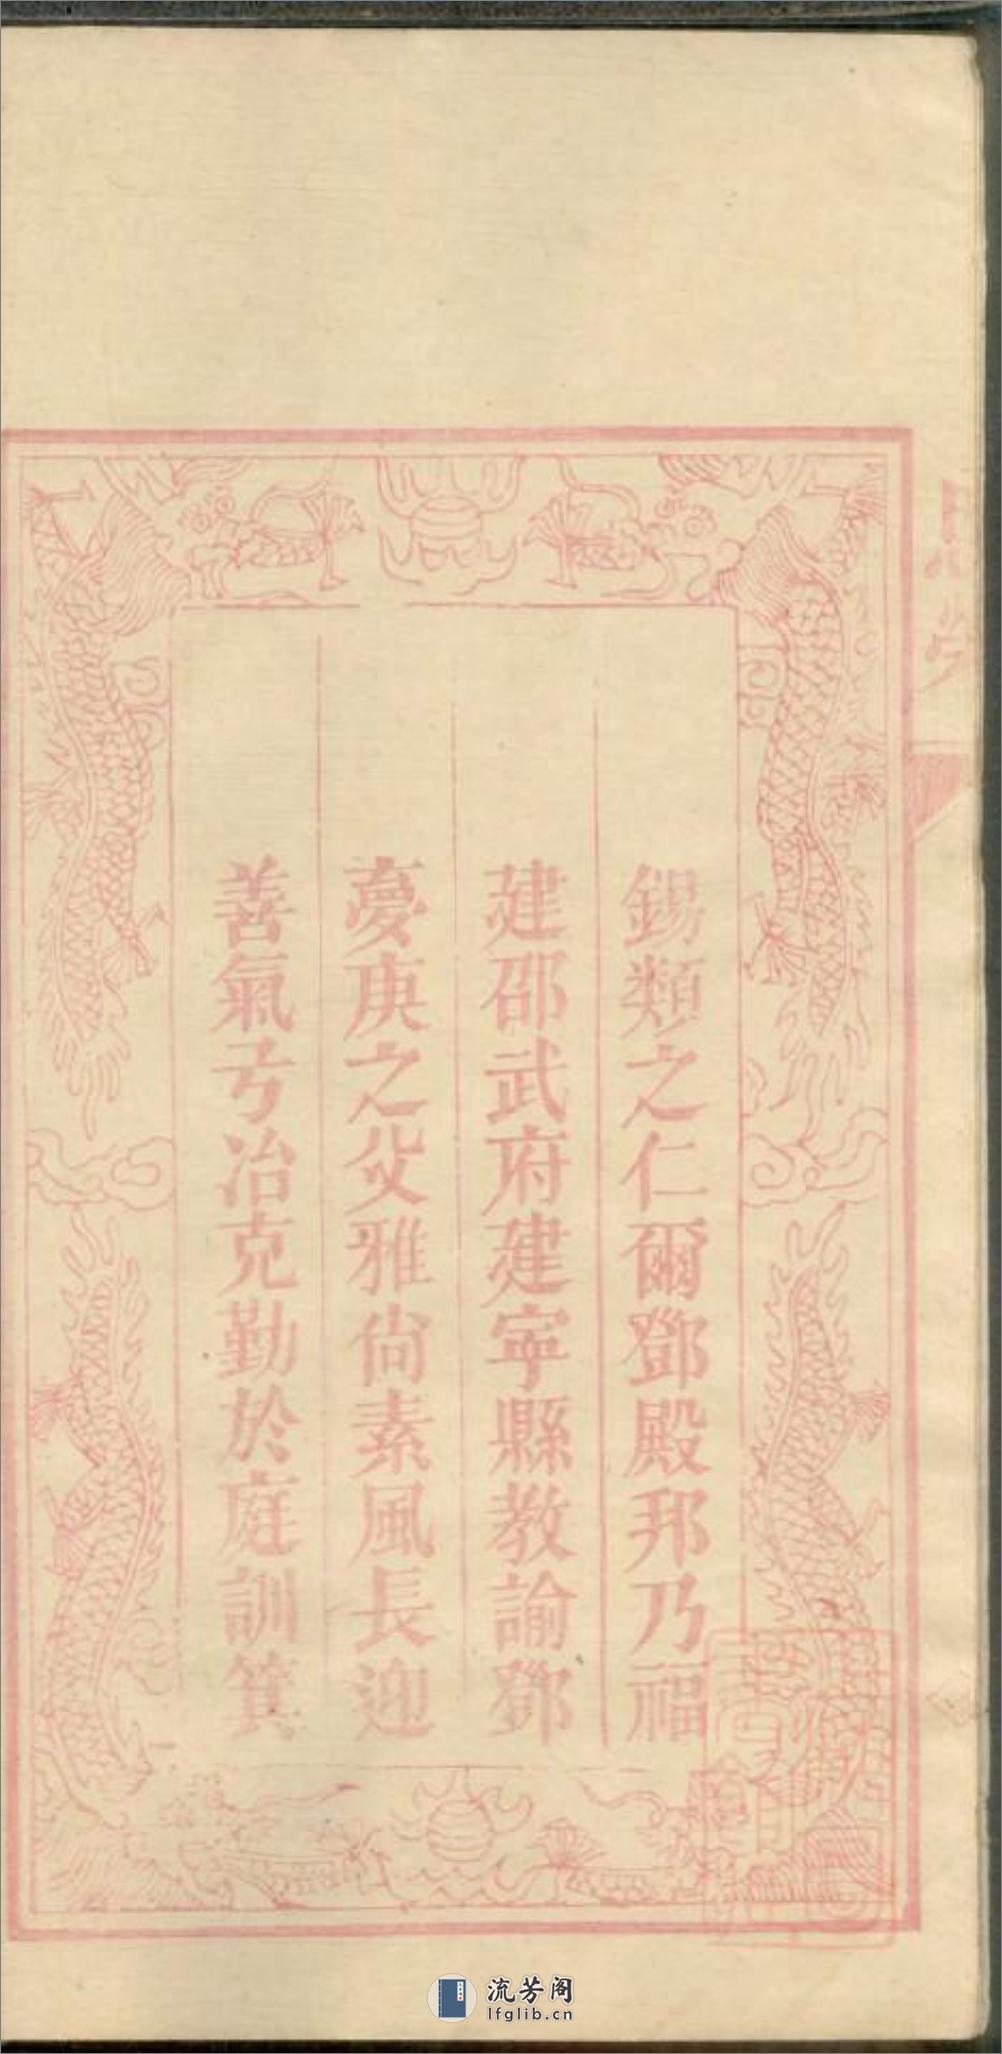 錫類之仁爾鄧殿邦乃福
建邵武府建寧縣教諭鄧
夢庚之父雅尚素風長迎
善氣弓冶克勤於庭訓箕
流芳阁
lfglib.cn